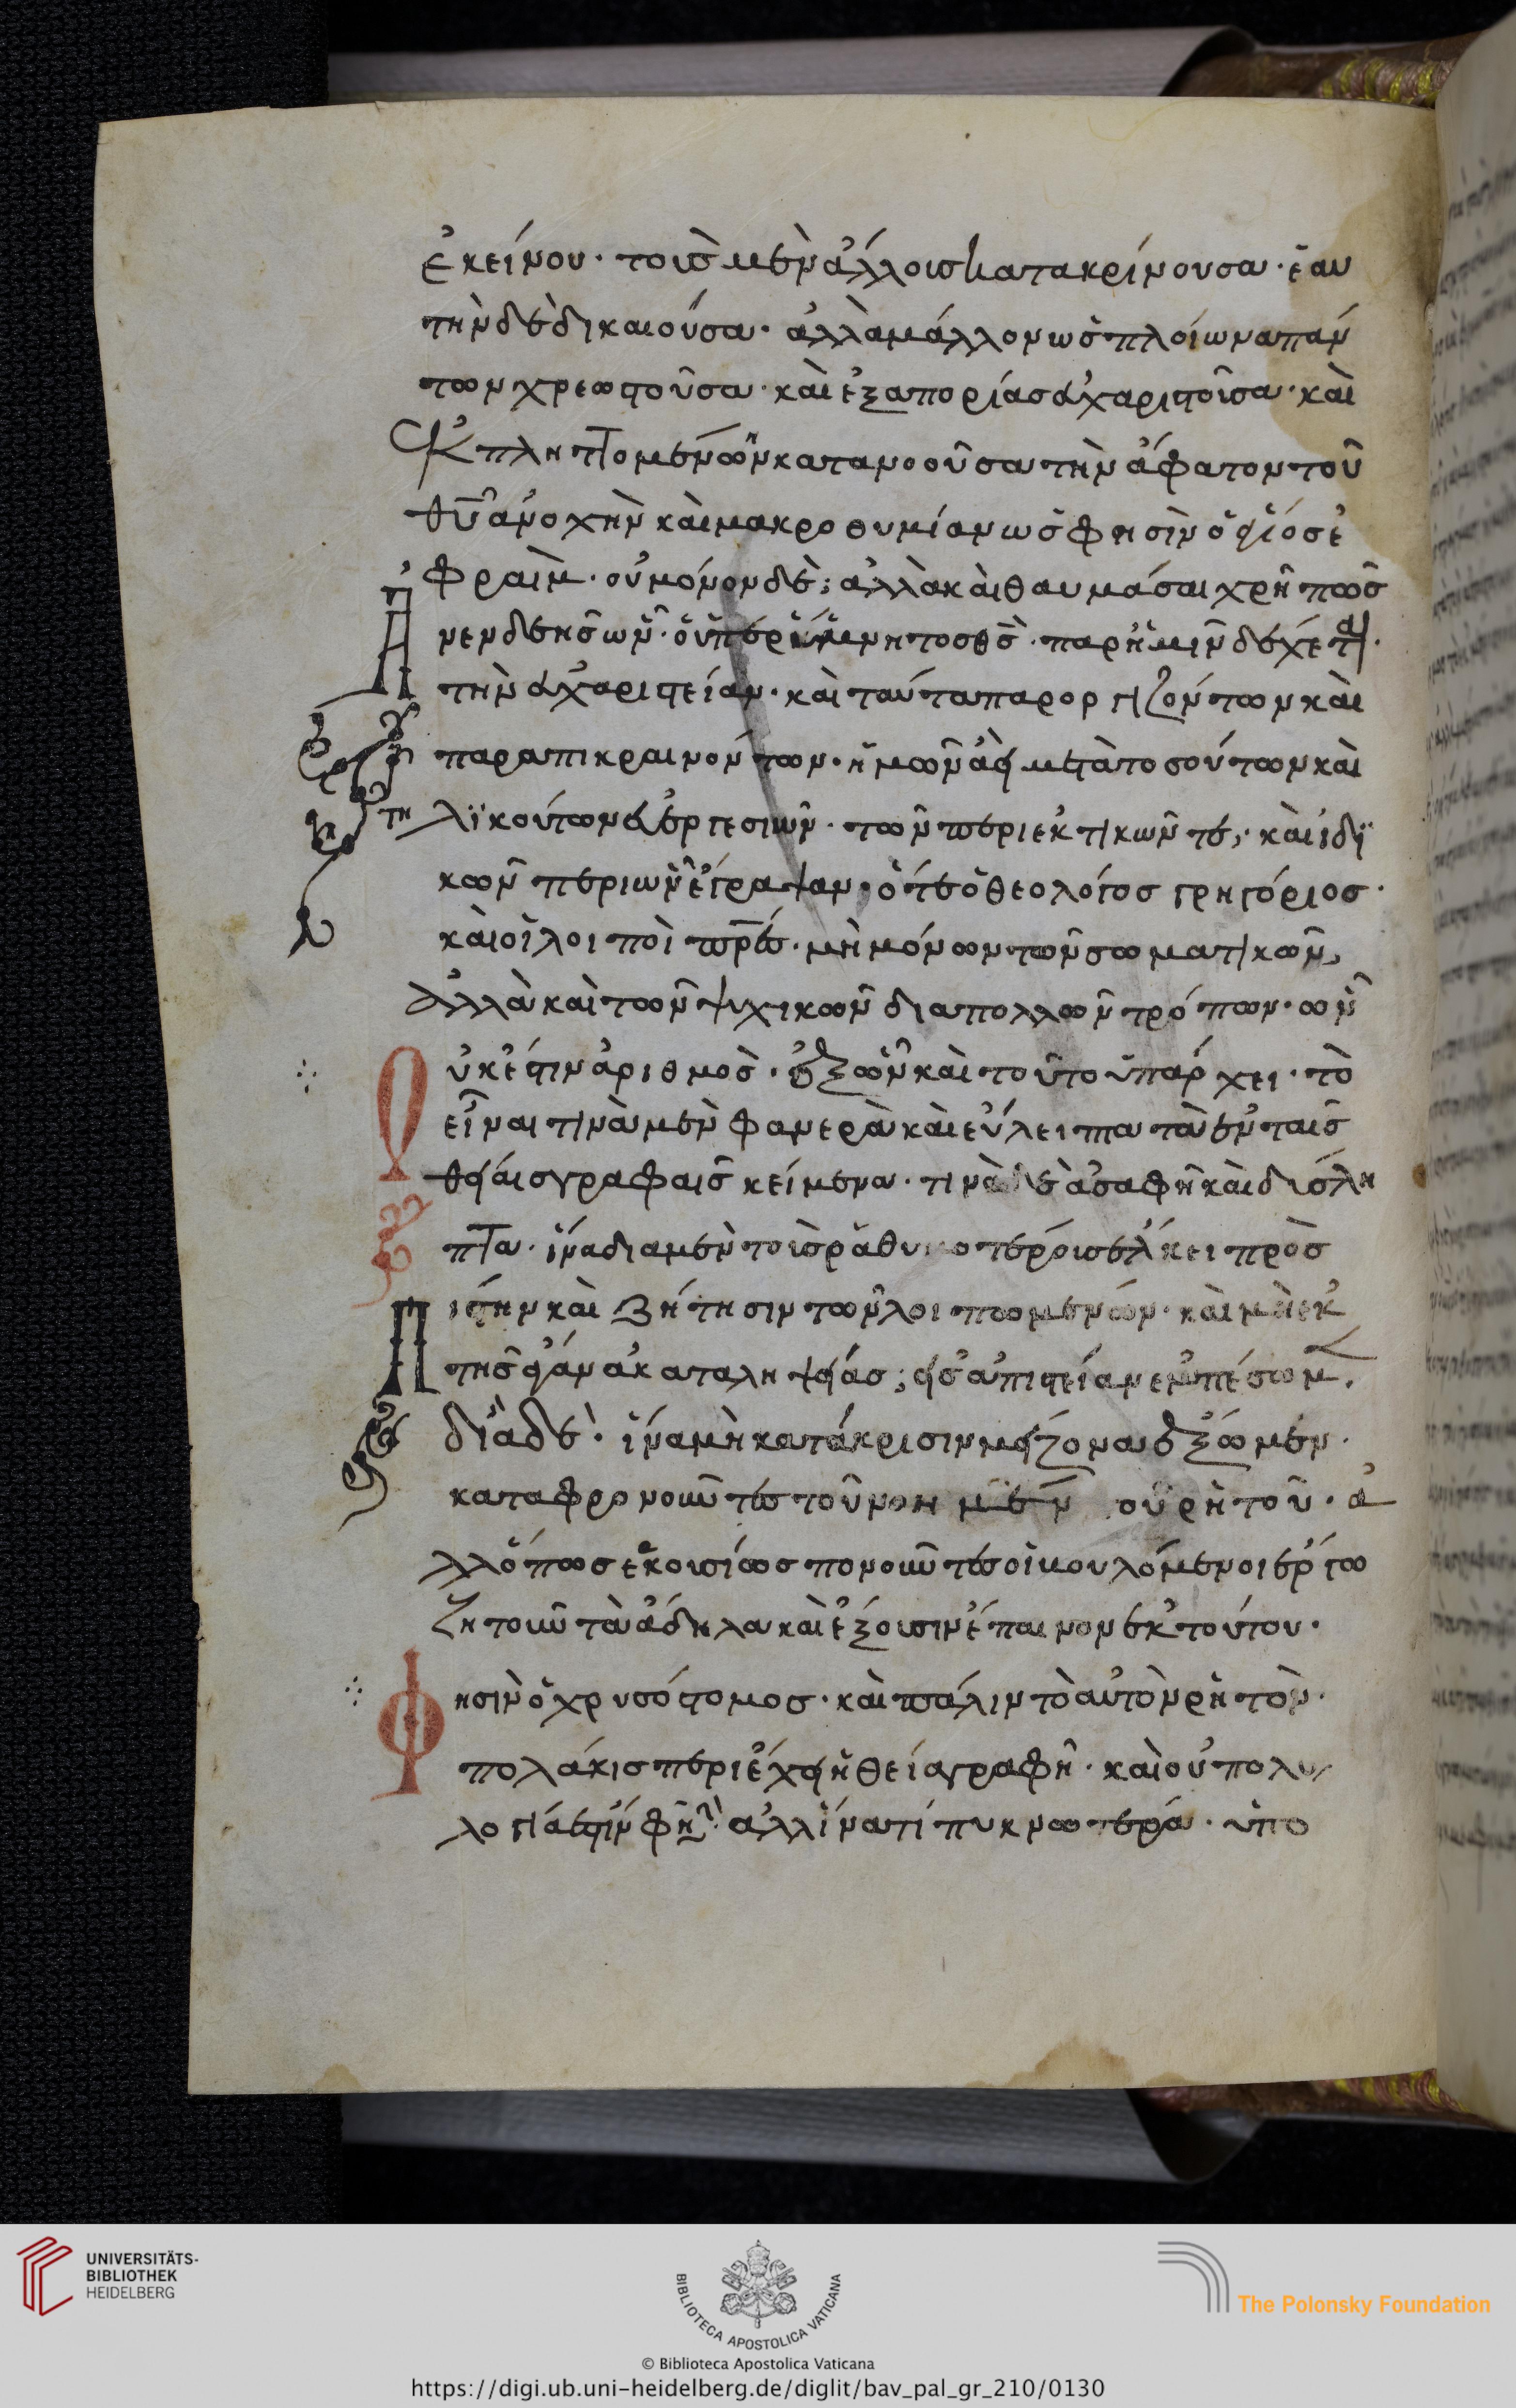 ἐκείνου· τοῖς μὲν ἄλλοις κατακρίνουσα· ἑαυ
τὴν δὲ δικαιοῦσα· ἀλλὰ μᾶλλον ὡς πλοίων ἁπάν
των χρεωστοῦσα· καὶ ἐξαπορίας εὐχαριστοῦσα· καὶ
ἐκπληττομένων κατανοοῦσα τὴν ἄφατον τοῦ
θυ ἀνοχὴν καὶ μακροθυμίαν ὡς φησὶν ὁ ὅσιος ἐ
φραὶμ· οὐ μόνον δὲ· ἀλλὰ καὶ θαυμάσαι χρὴ πῶς
ὁ ὑπερύμνητος θς· παρ ἡμῖν δέχεται·
τὴν εὐχαριστείαν· καὶ ταῦτα παροργιζόντων καὶ
παραπικραινόντων· ἡμῶν ἀεὶ μετὰ τοσούτων καὶ
τηλικούτων εὐεργεσιῶν· τῶν περιεκτικῶν τε· καὶ ἰδι
κῶν περὶ ὧν ἔγραψαν· ὅτε ὁ θεολόγος γρηγόριος·
καὶ οἱ λοιποὶ πρες· μὴ μόνων τῶν σωματικῶν,
ἀλλὰ καὶ τῶν ψυχικῶν διαπολλῶν τρόπων· ὧν
οὐκ ἔστιν ἀριθμὸς· ἐξ ὧν καὶ τοῦτο ὑπάρχει· τὸ
εἶναι τινὰ μὲν φανερὰ καὶ εὔλειπτα τὰ ἐν ταῖς
θείαις γραφαῖς κείμενα· τινὰ δὲ ἀσαφῆ καὶ δύσλη
πτα· ἵνα διαμὲν τοῖς ῥαθυμοτέροις ἕλκει πρὸς
πίστην καὶ ζήτησιν τῶν λοιπωμένων· καὶ μὴ ἐκ
τῆς ἀκαταληψείας; εἰς ἀπιστείαν ἐμπέσωμ.
διὰ δὲ· ἵνα μὴ κατάκρισιν μείζονα δεξώμεν·
καταφρονοῦντες τοῦ νοη μεν οὐ ρητοῦ· ἀ
λλ ὅπως ἑκουσίως πονοῦντες οἱ βουλόμενοι ἔργω
ζητοῦν τὰ ἄδηλα καὶ ἕξουσιν ἔπαινον ἐκ τούτου·
φησὶν ὁ χρυσόστομος· καὶ πάλιν τὸ αὐτὸν ρητὸν·
πολάκις περιέχει ἡ θεία γραφὴ· καὶ οὐ πολυ
λογία ἐστίν φη· ἀλλ ἵνα τί πυκνωτέρα· ὑπο
UNIVERSITÄTS-
BIBLIOTHEK
HEIDELBERG
BIBLIOTECA APOSTOLICA VATICANA
The Polonsky Foundation
© Biblioteca Apostolica Vaticana
https://digi.ub.uni-heidelberg.de/diglit/bav_pal_gr_210/0130